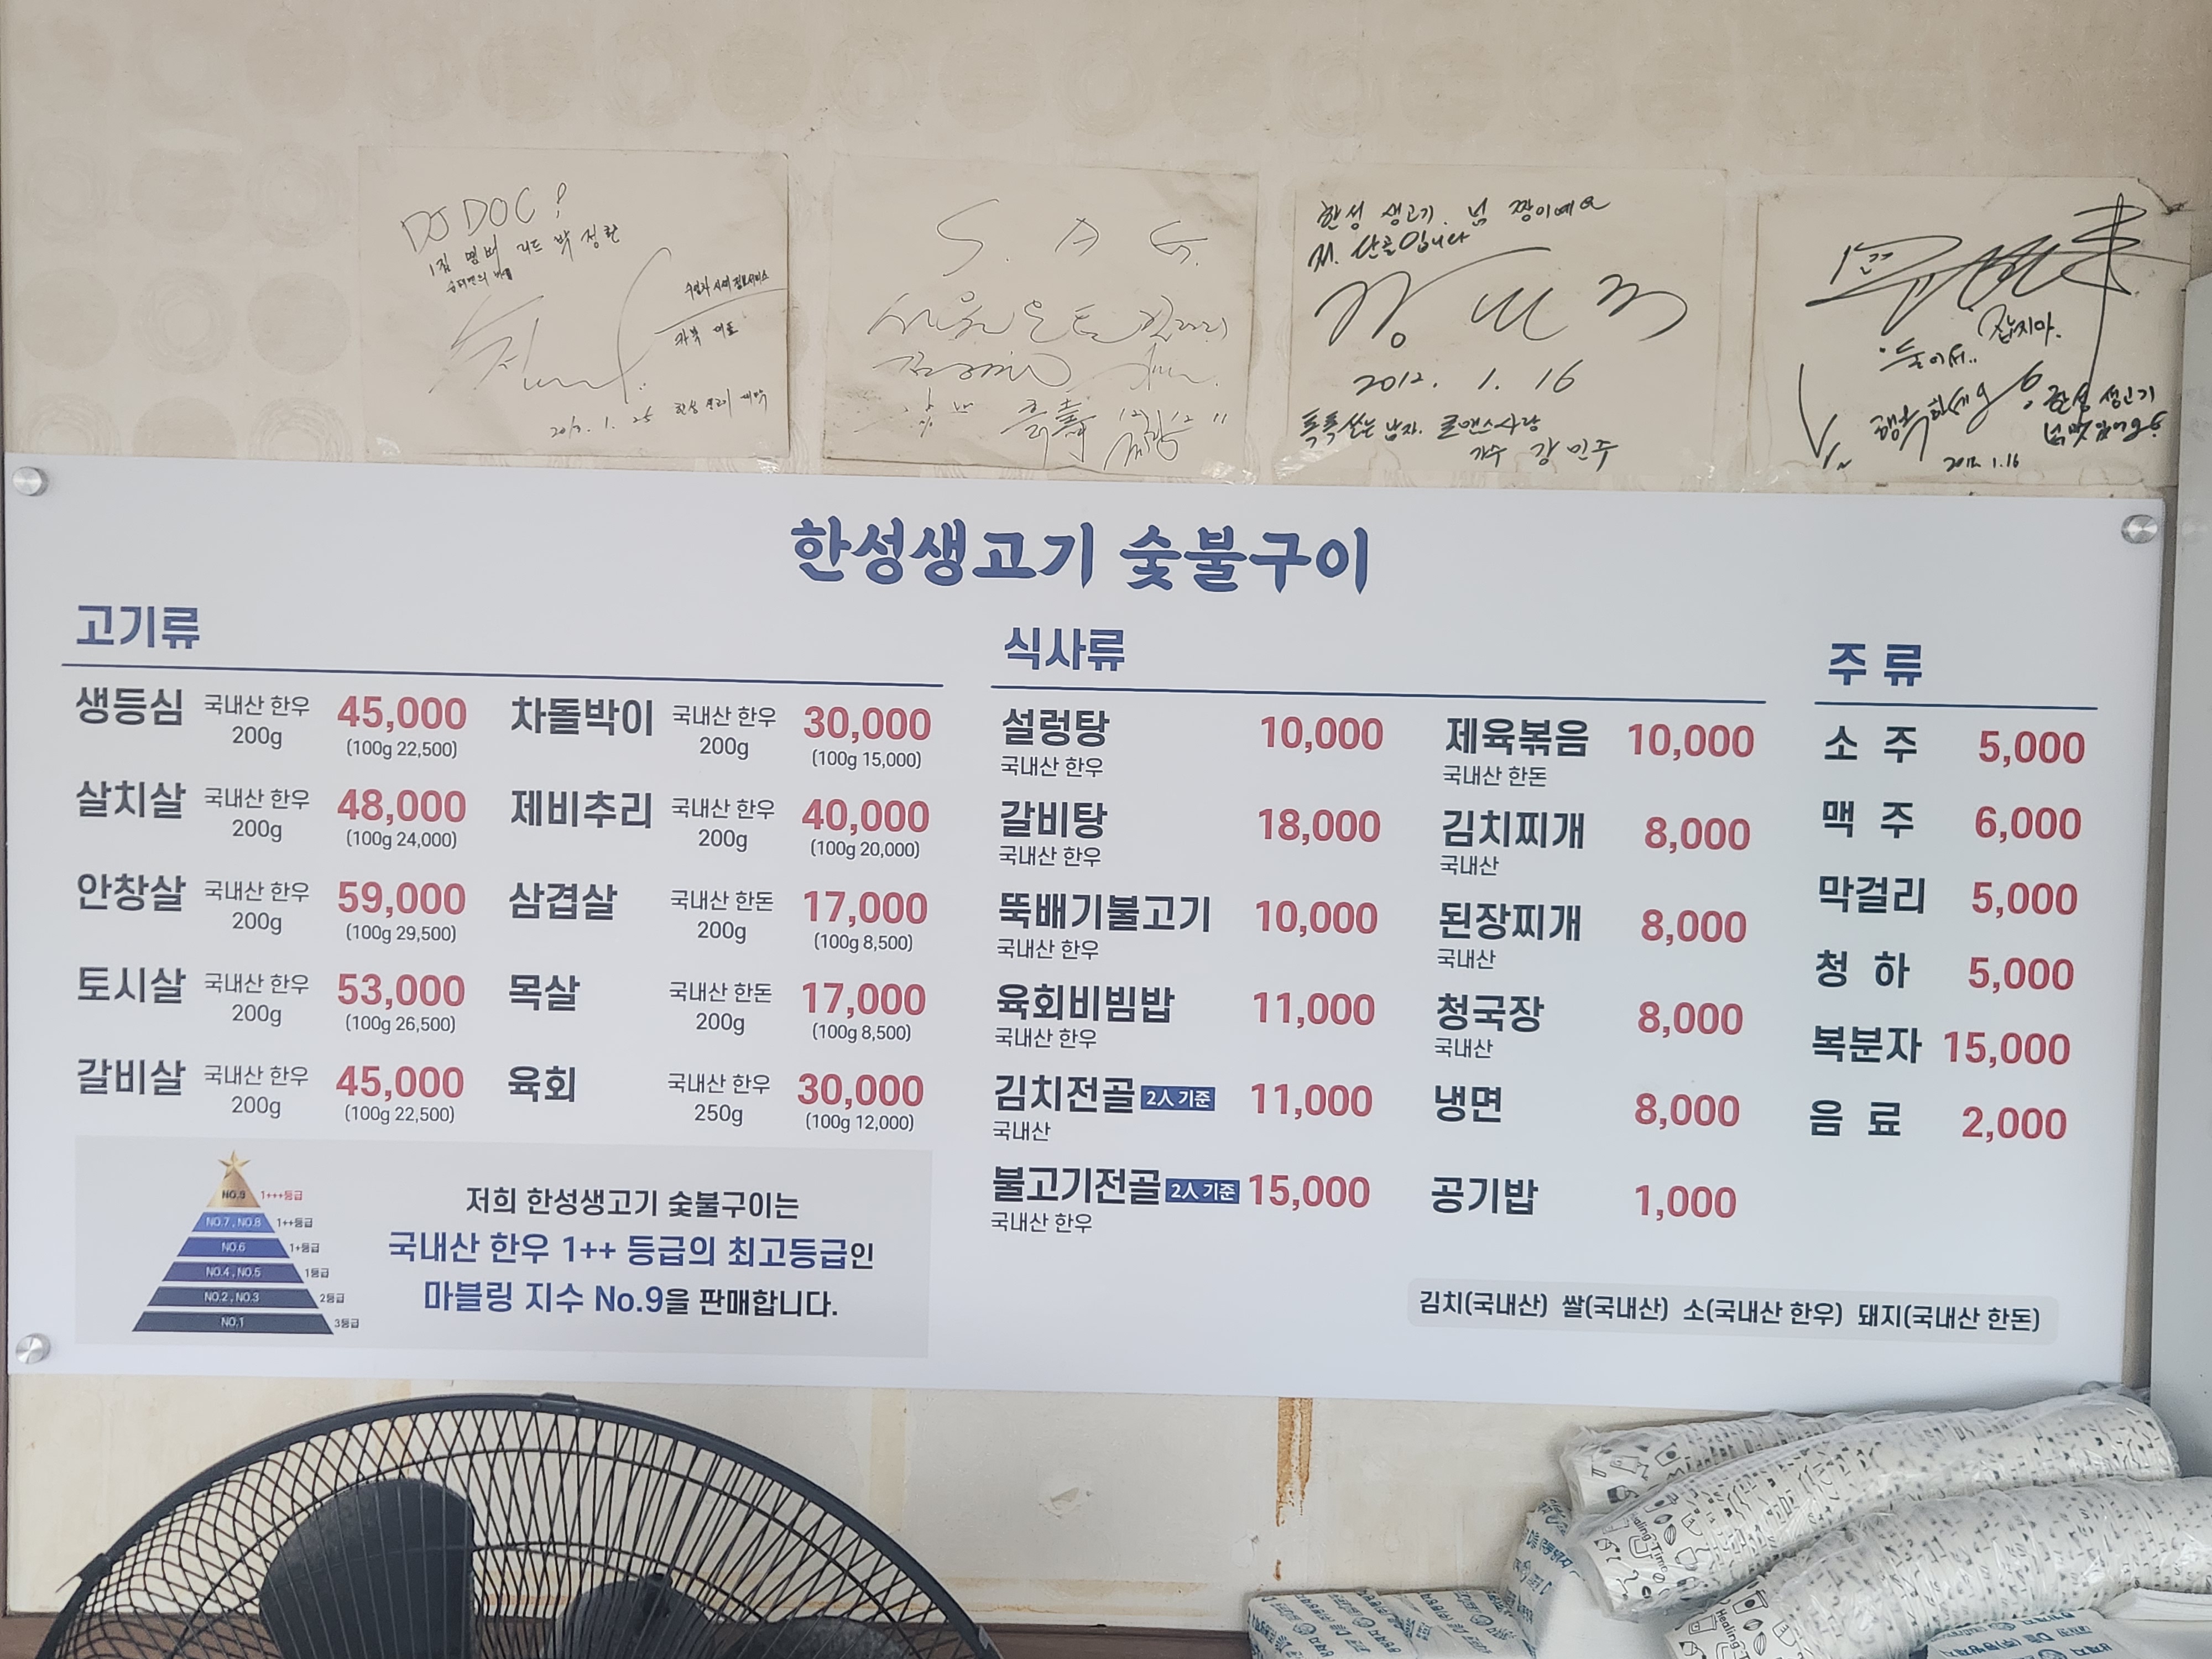 DJ DOC!
1집 멤버 리드 박정환
카북 대표
S. A. G.
한성 생고기. 넘 짱이예요
저. 산골입니다
2012. 1. 16
톡톡쏘는 남자. 로맨스사랑
가수 강민주
둘이서.. 잡지마.
행복하세요
한성 생고기
넘 맛있어요
2012. 1. 16
한성생고기 숯불구이
고기류
생등심 국내산 한우 200g 45,000 (100g 22,500)
살치살 국내산 한우 200g 48,000 (100g 24,000)
안창살 국내산 한우 200g 59,000 (100g 29,500)
토시살 국내산 한우 200g 53,000 (100g 26,500)
갈비살 국내산 한우 200g 45,000 (100g 22,500)
차돌박이 국내산 한우 200g 30,000 (100g 15,000)
제비추리 국내산 한우 200g 40,000 (100g 20,000)
삼겹살 국내산 한돈 200g 17,000 (100g 8,500)
목살 국내산 한돈 200g 17,000 (100g 8,500)
육회 국내산 한우 250g 30,000 (100g 12,000)
NO.9 1+++등급
NO.7 , NO.8 1++등급
NO.6 1+등급
NO.4 , NO.5 1등급
NO.2 , NO.3 2등급
NO.1 3등급
저희 한성생고기 숯불구이는
국내산 한우 1++ 등급의 최고등급인
마블링 지수 No.9을 판매합니다.
식사류
설렁탕 10,000
국내산 한우
갈비탕 18,000
국내산 한우
뚝배기불고기 10,000
국내산 한우
육회비빔밥 11,000
국내산 한우
김치전골 2人 기준 11,000
국내산
불고기전골 2人 기준 15,000
국내산 한우
제육볶음 10,000
국내산 한돈
김치찌개 8,000
국내산
된장찌개 8,000
국내산
청국장 8,000
국내산
냉면 8,000
공기밥 1,000
주 류
소 주 5,000
맥 주 6,000
막걸리 5,000
청 하 5,000
복분자 15,000
음 료 2,000
김치(국내산) 쌀(국내산) 소(국내산 한우) 돼지(국내산 한돈)
Healing Time
Healing